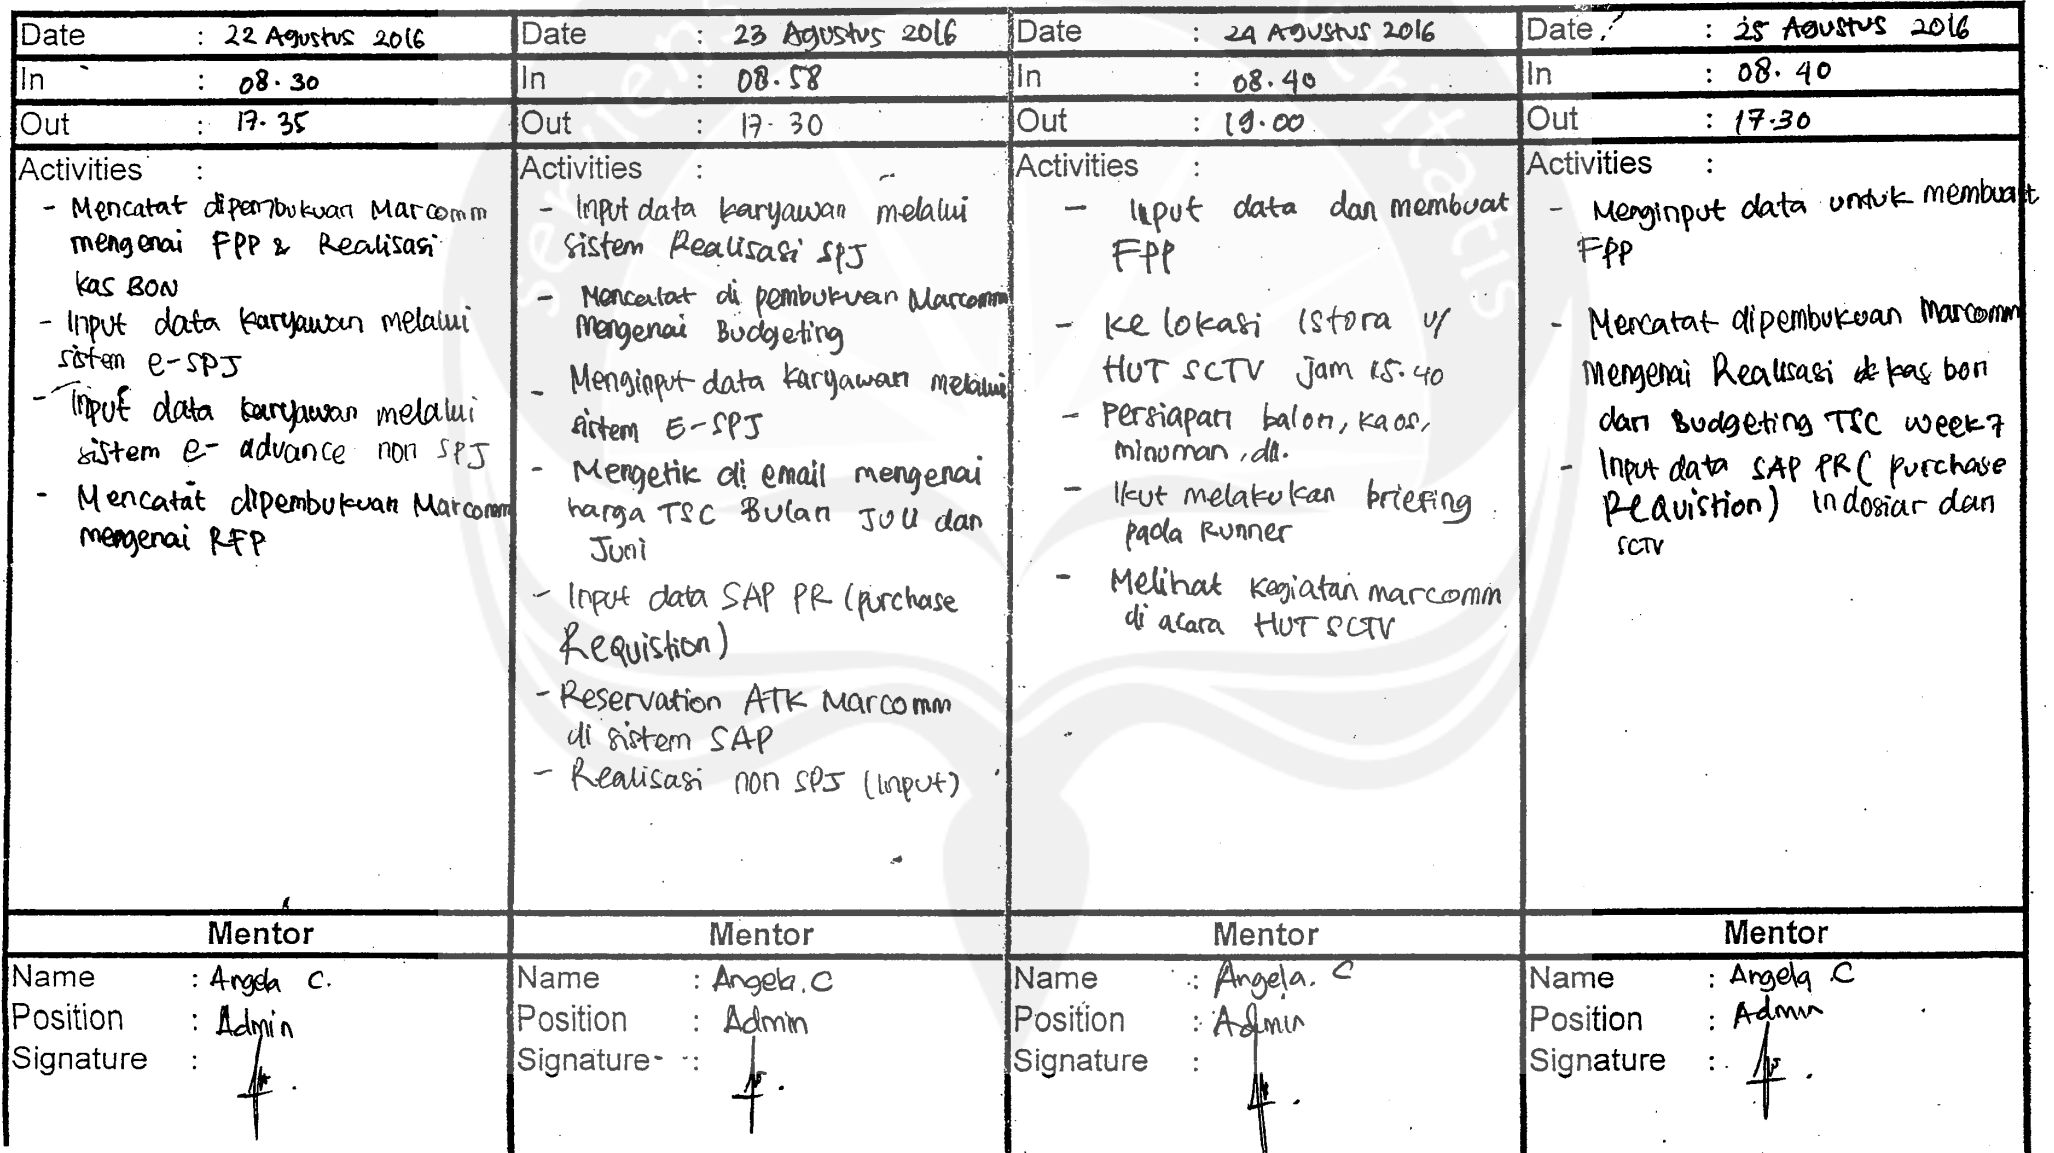 Date : 22 Agustus 2016
In : 08.30
Out : 17.35
Activities :
- Mencatat dipembukuan Marcomm
mengenai FPP & Realisasi
kas BON
- Input data karyawan melalui
sistem e-SPJ
- Input data karyawan melalui
sistem e-advance non SPJ
- Mencatat dipembukuan Marcomm
mengenai RFP
Mentor
Name : Angela C.
Position : Admin
Signature :
Date : 23 Agustus 2016
In : 08.58
Out : 17.30
Activities :
- Input data karyawan melalui
sistem Realisasi SPJ
- Mencatat di pembukuan Marcomm
Mengenai Budgeting
- Menginput data karyawan melalui
sistem E-SPJ
- Mengetik di email mengenai
harga TSC Bulan Juli dan
Juni
- Input data SAP PR (purchase
Requistion)
- Reservation ATK Marcomm
di sistem SAP
- Realisasi non SPJ (Input)
Mentor
Name : Angela.C
Position : Admin
Signature :
Date : 24 Agustus 2016
In : 08.40
Out : 19.00
Activities :
- Input data dan membuat
FPP
- ke lokasi Istora u/
HUT SCTV jam 15.40
- Persiapan balon, kaos,
minuman, dll.
- Ikut melakukan briefing
pada Runner
- Melihat kegiatan marcomm
di acara HUT SCTV
Mentor
Name : Angela. C
Position : Admin
Signature :
Date : 25 Agustus 2016
In : 08.40
Out : 17.30
Activities :
- Menginput data untuk membuat
FPP
- Mencatat dipembukuan Marcomm
Mengenai Realisasi kas bon
dan Budgeting TSC week 7
- Input data SAP PR ( purchase
Requistion) Indosiar dan
SCTV
Mentor
Name : Angela C
Position : Admin
Signature :
serviens
veritatis